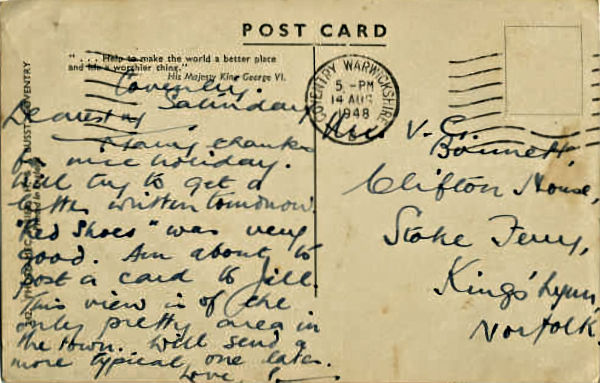 POST CARD
". . . Help to make the world a better place
and life a worthier thing."
His Majesty King George VI.
COVENTRY WARWICKSHIRE
5 - PM
14 AUG
1948
Coventry.
Saturday
Dearest
Many thanks
for nice holiday.
Will try to get a
letter written tomorrow.
"Red Shoes" was very
good. Am about to
post a card to Jill.
This view is of the
only pretty area in
the town. Will send a
more typical one later.
Love,
V. C.
Bonnett,
Clifton House,
Stoke Ferry,
Kings' Lynn,
Norfolk.
COVENTRY